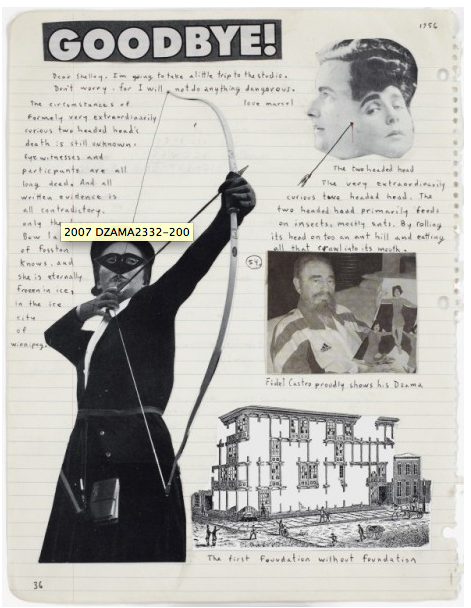 GOODBYE!
1956
Dear Shelley, I'm going to take a little trip to the studio.
Don't worry, for I will not do anything dangerous.
love marcel
The circumstances of
formely very extraordinarily
curious two headed head's
death is still unknown.
Eye witnesses and
participants are all
long dead. And all
written evidence is
all contradictory.
only the
2007 DZAMA2332-200
Bow
of fosston
knows, and
she is eternally
frozen in ice,
in the ice
city
of
winnipeg.
The two headed head
The very extraordinarily
curious two headed head. The
two headed head primarily feeds
on insects, mostly ants. By rolling
its head on too an ant hill and eatting
all that crawl into its mouth.
54
Fidel Castro proudly shows his Dzama
The first foundation without foundation
36